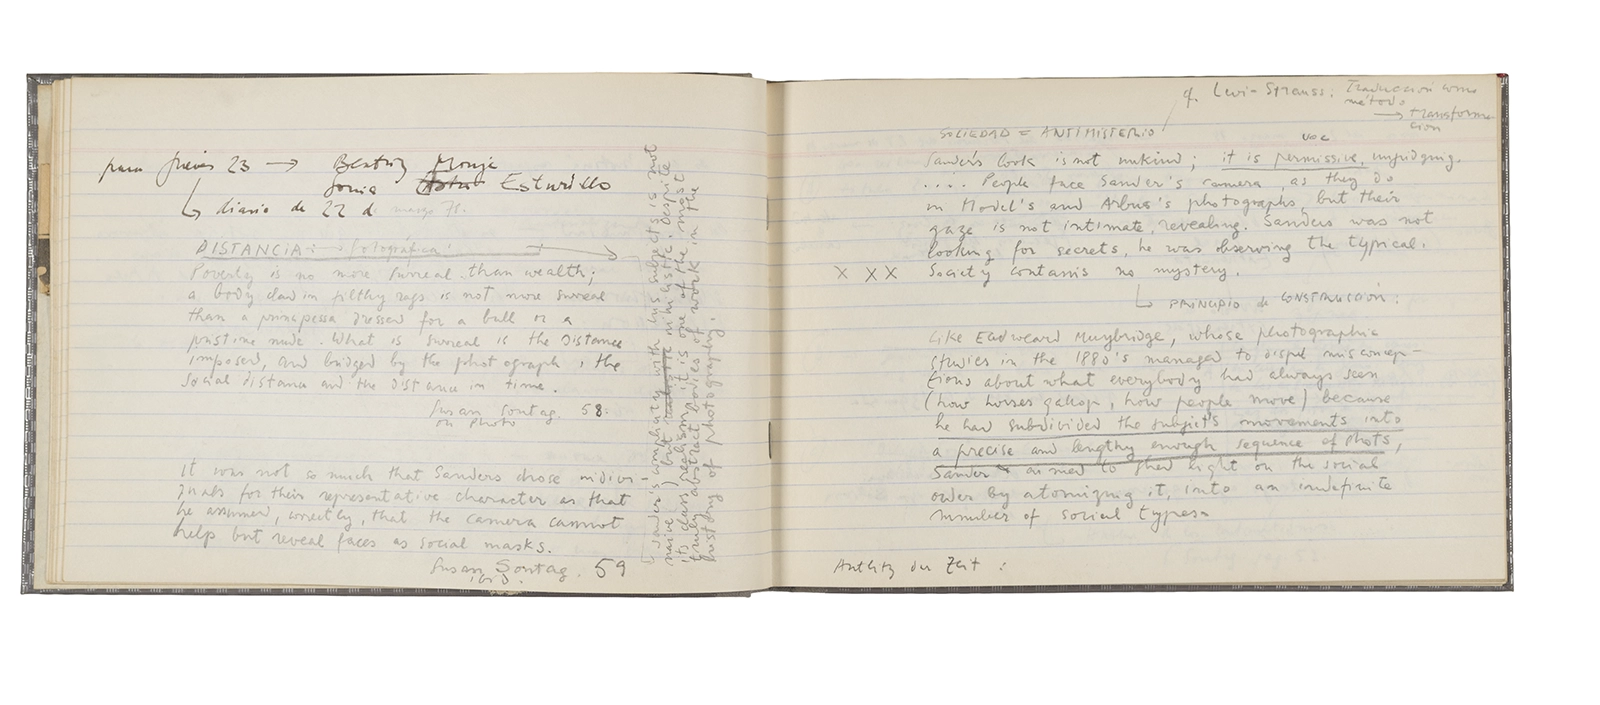 para jueves 23 → Beatriz Monje
Sonia Esturillo
↳ diario de 22 d marzo 71.
DISTANCIA: → fotográfica:
Poverty is no more surreal than wealth;
a body clad in filthy rags is not more surreal
than a principessa dressed for a ball or a
pristine nude. What is surreal is the distance
imposed, and bridged by the photograph: the
social distance and the distance in time.
Susan Sontag. 58.
on photo
It was not so much that Sanders chose indivi-
duals for their representative character as that
he assumed, correctly, that the camera cannot
help but reveal faces as social masks.
Susan Sontag. 59
ibid.
(Sander's complicity with his subjects is not
naive) but nihilistic. Despite
its class realism, it is one of the most
truly abstract bodies of work in the
history of photography.
cf. Levi-Strauss: Traducción como
método
→ transforma-
ción
SOCIEDAD = ANTIMISTERIO
Sander's look is not unkind; it is permissive, unjudging.
.... People face Sander's camera, as they do
in Model's and Arbus's photographs, but their
gaze is not intimate, revealing. Sanders was not
looking for secrets, he was observing the typical.
X X X Society contains no mystery.
↳ PRINCIPIO de CONSTRUCCIÓN:
Like Eadweard Muybridge, whose photographic
studies in the 1880's managed to dispel misconcep-
tions about what everybody had always seen
(how horses gallop, how people move) because
he had subdivided the subject's movements into
a precise and lengthy enough sequence of shots,
Sander aimed to shed light on the social
order by atomizing it, into an indefinite
number of social types.
Antlitz der Zeit: